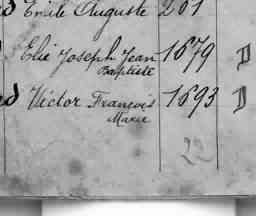 Emile Auguste 201
Elie Joseph Jean 1679 D
Baptiste
Victor François 1693 D
Marie
22